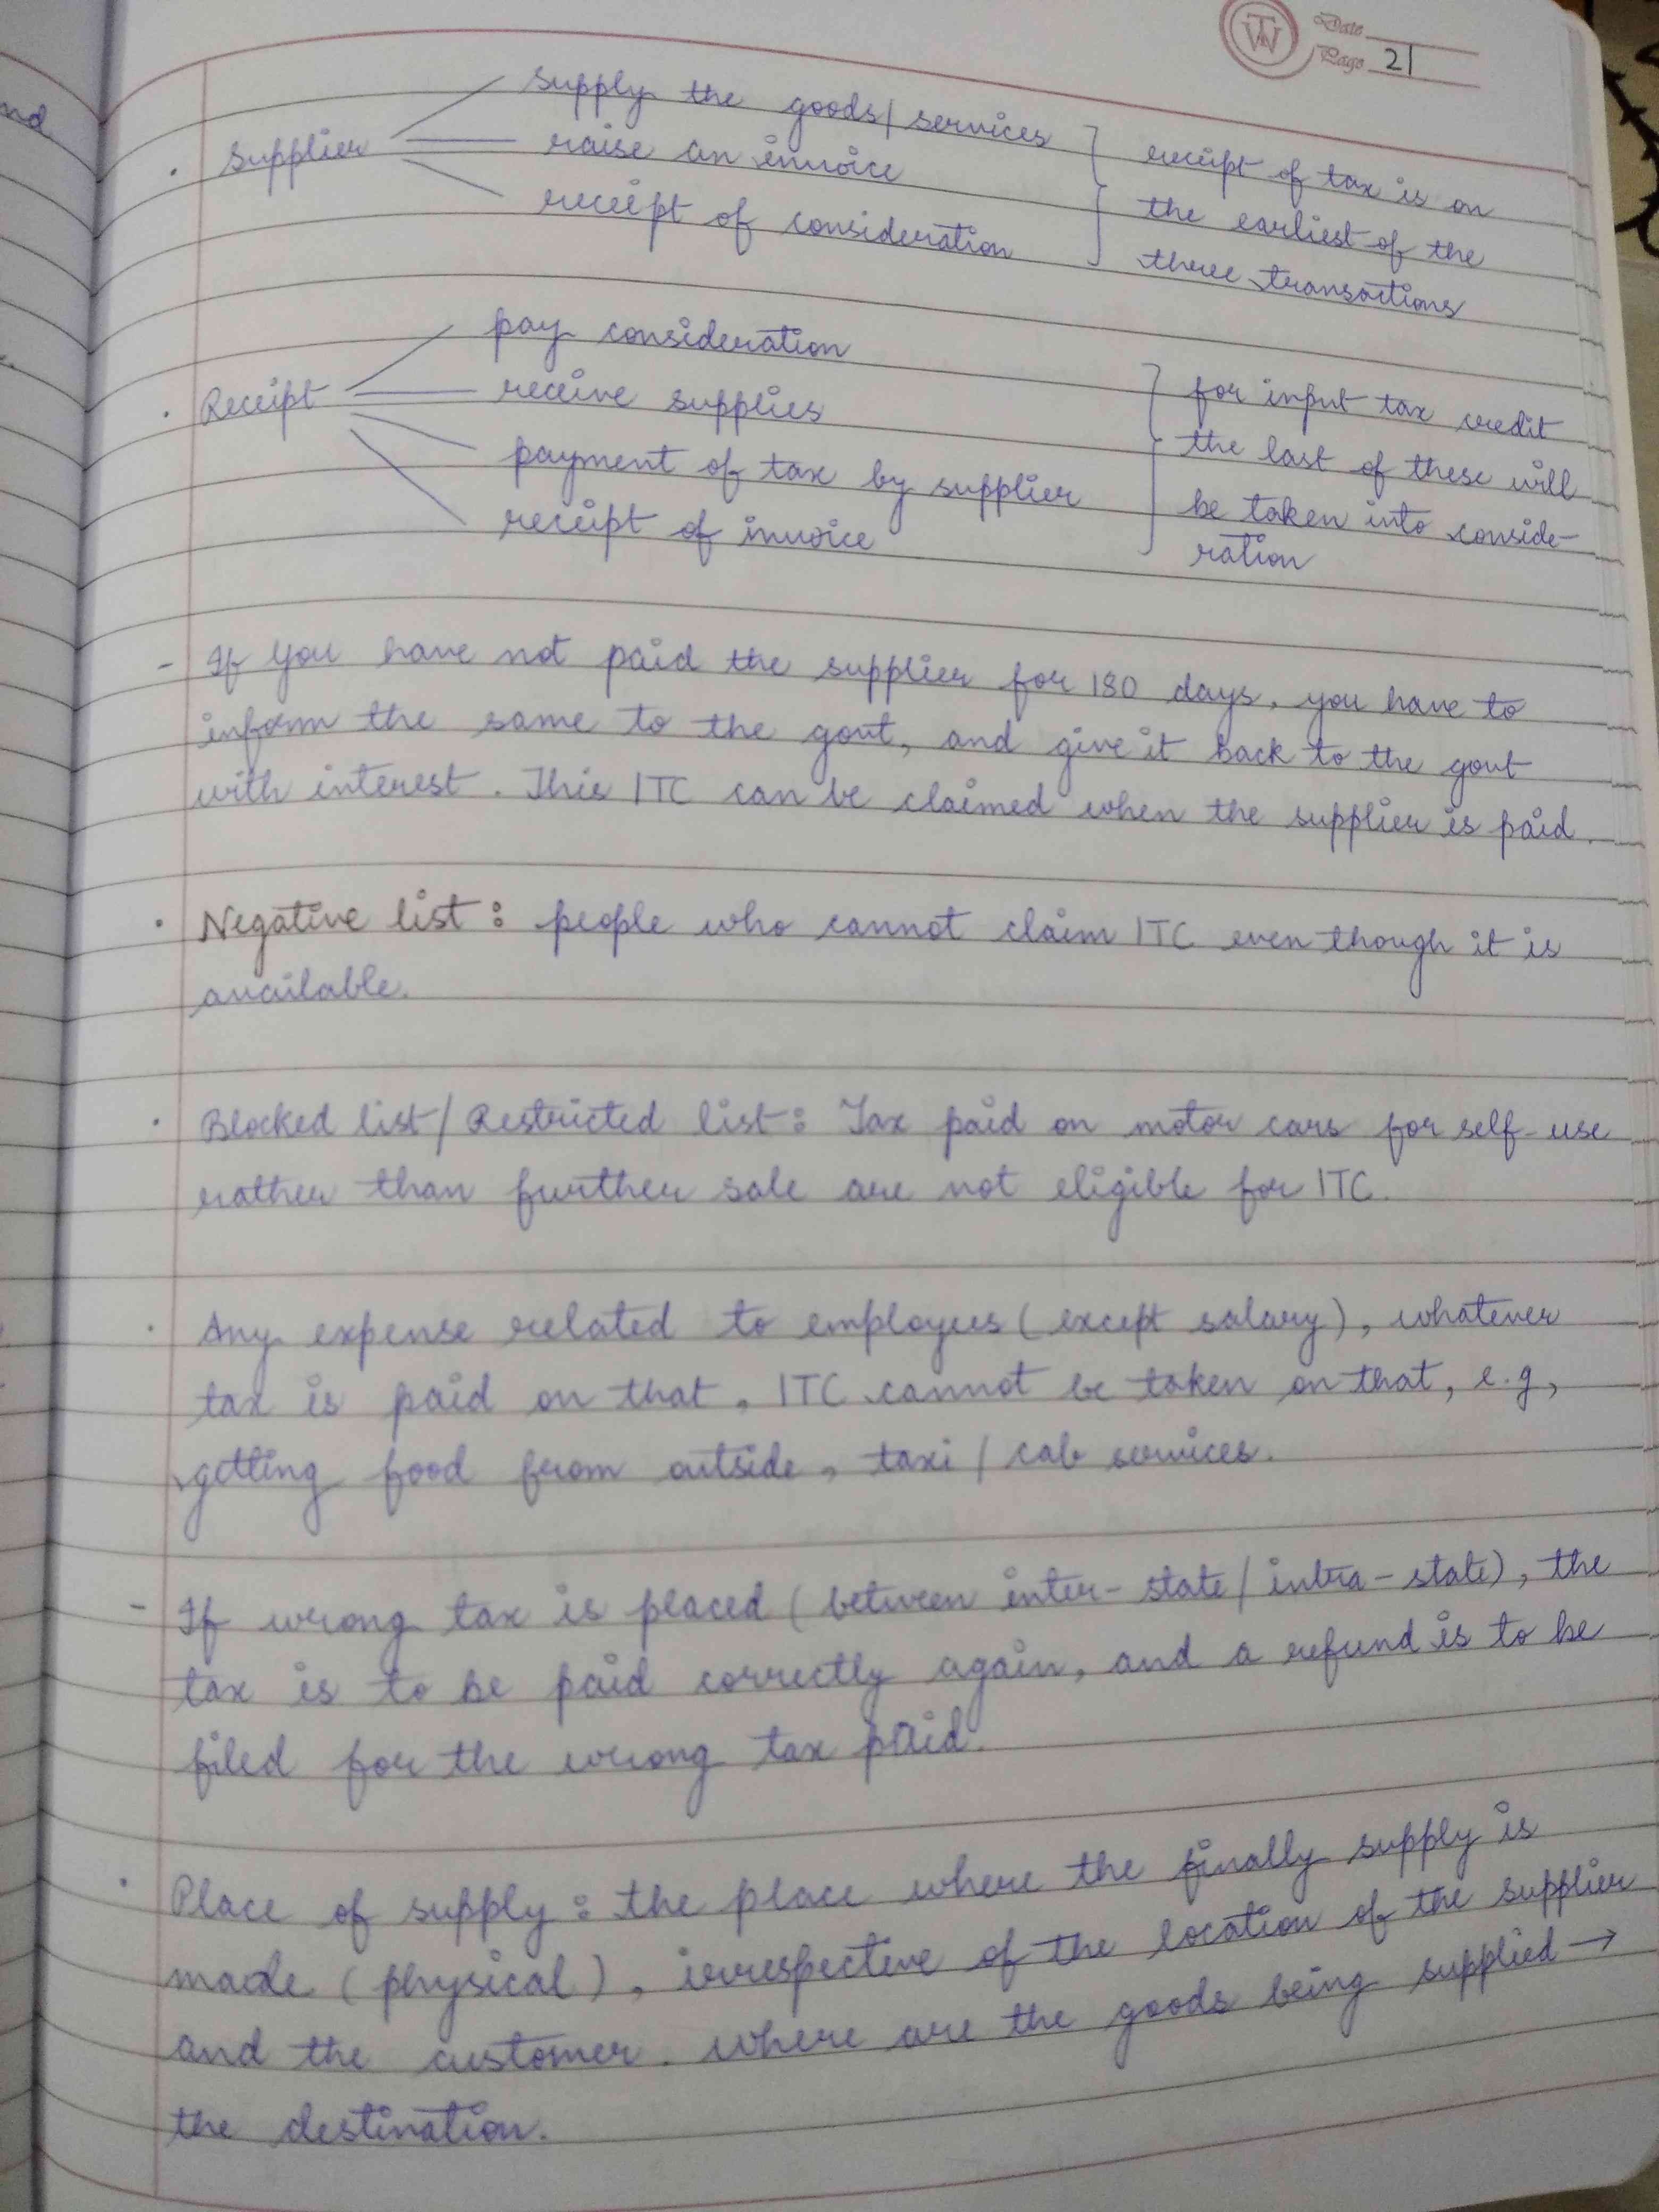 Date
Page 21
supply the goods/services
· Supplier raise an invoice
receipt of consideration
receipt of tax is on
the earliest of the
three transactions
pay consideration
· Receipt receive supplies
payment of tax by supplier
receipt of invoice
for input tax credit
the last of these will
be taken into conside-
ration
- If you have not paid the supplier for 180 days, you have to
inform the same to the govt, and give it back to the govt
with interest. This ITC can be claimed when the supplier is paid.
· Negative list: people who cannot claim ITC even though it is
available.
· Blocked list/Restricted list: Tax paid on motor cars for self-use
rather than further sale are not eligible for ITC.
· Any expense related to employees (except salary), whatever
tax is paid on that, ITC cannot be taken on that, e.g,
getting food from outside, taxi/cab services.
- If wrong tax is placed (between inter-state/intra-state), the
tax is to be paid correctly again, and a refund is to be
filed for the wrong tax paid.
· Place of supply: the place where the finally supply is
made (physical), irrespective of the location of the supplier
and the customer. where are the goods being supplied →
the destination.